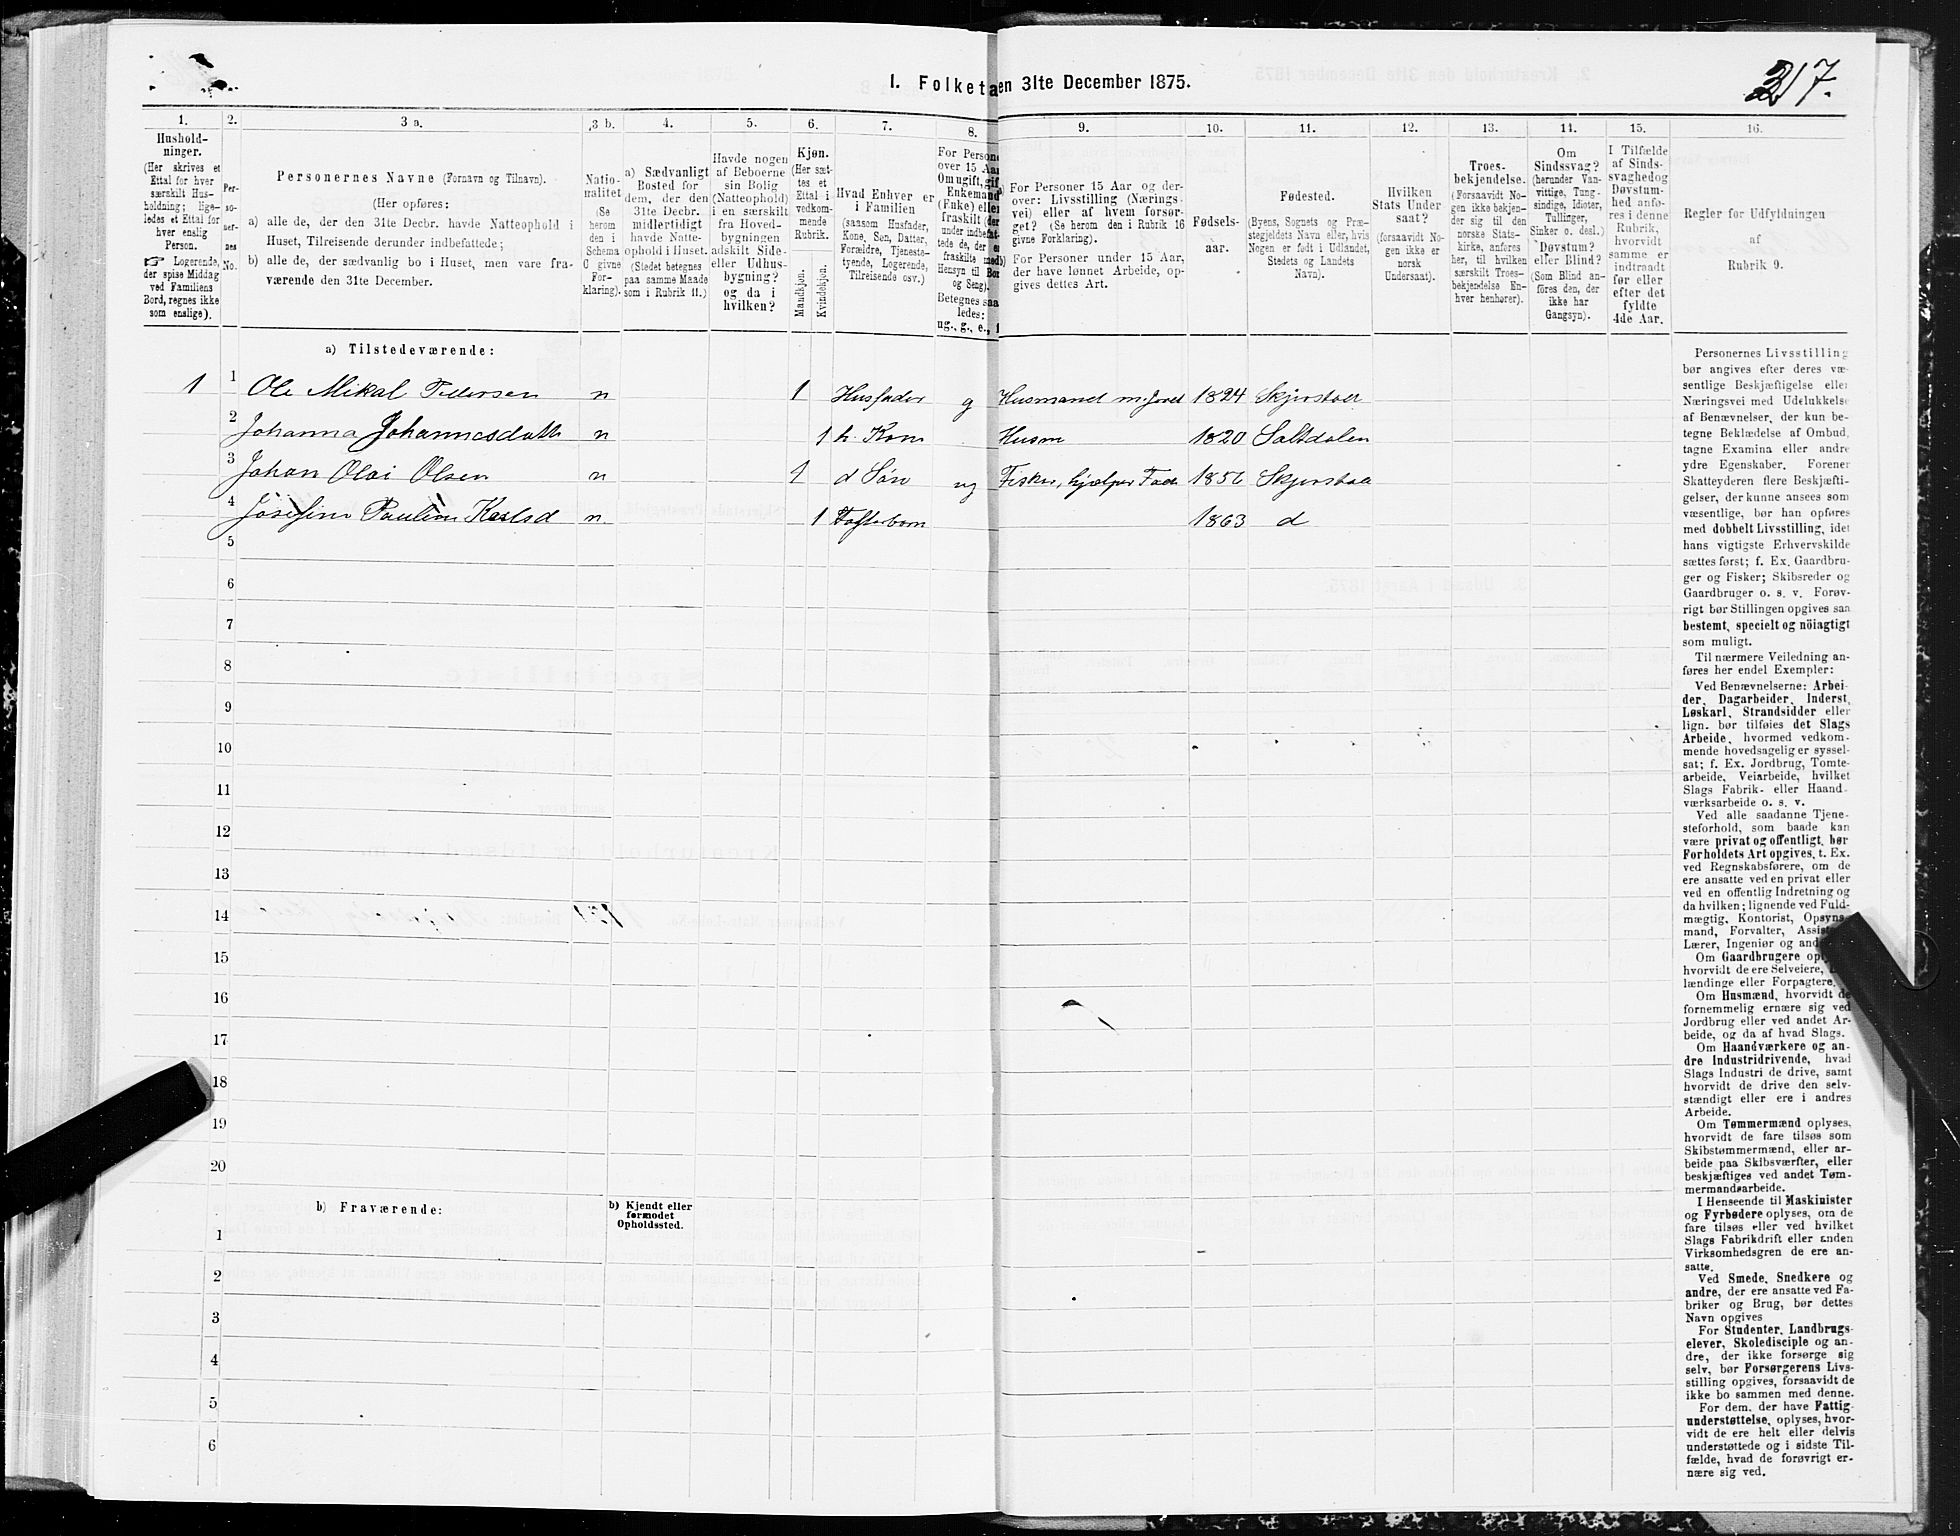 I. Folketa en 31te December 1875.
217.
1.
Hushold-
ninger.
(Her skrives et
Ettal for hver
særskilt Hus-
holdning; lige-
ledes et Ettal for
hver enslig
Person.
☞ Logerende,
der spise Middag
ved Familiens
Bord, regnes ikke
som enslige).
2.
Per-
so-
ner-
nes
No.
3 a.
Personernes Navne (Fornavn og Tilnavn).
(Her opføres:
a) alle de, der den 31te Decbr. havde Natteophold i
Huset, Tilreisende derunder indbefattede;
b) alle de, der sædvanlig bo i Huset, men vare fra-
værende den 31te December.
3 b.
Natio-
nalitet
(Se
herom
den i
Schema
C givne
For-
klaring).
4.
a) Sædvanligt
Bosted for
dem, der den
31te Decbr.
midlertidigt
havde Natte-
ophold i Huset.
(Stedet betegnes
paa samme Maade
som i Rubrik 11.)
5.
Havde nogen
af Beboerne
sin Bolig
(Natteophold)
i en særskilt
fra Hoved-
bygningen
adskilt Side-
eller Udhus-
bygning?
og da i
hvilken?
6.
Kjøn.
(Her sæt-
tes et
Ettal i
vedkom-
mende
Rubrik.
Mandkjøn.
Kvindekjøn.
7.
Hvad Enhver er
i Familien
(saasom Husfader,
Kone, Søn, Datter,
Forældre, Tjeneste-
tyende, Logerende,
Tilreisende osv.)
8.
For Persone
over 15 Aar
Om ugift, gif
Enkemand
(Enke) eller
fraskilt (der
under indbefat-
tede de, der e
fraskilte med
Hensyn til Bor
og Seng).
Betegnes saa
ledes:
ug., g., e., f
9.
a) For Personer 15 Aar og der-
over: Livsstilling (Nærings-
vei) eller af hvem forsør-
get? (Se herom den i Rubrik 16
givne Forklaring).
b) For Personer under 15 Aar,
der have lønnet Arbeide, op-
gives dettes Art.
10.
Fødsels-
aar.
11.
Fødested.
(Byens, Sognets og Præ-
stegjeldets Navn eller, hvis
Nogen er født i Udlandet,
Stedets og Landets
Navn).
12.
Hvilken
Stats Under
saat?
(forsaavidt No-
gen ikke er
norsk
Undersaat).
13.
Troes-
bekjendelse.
(Forsaavidt No-
gen ikke bekjen-
der sig til den
norske Stats-
kirke, anføres
her, til hvilken
særskilt Troes-
bekjendelse En-
hver henhører).
14.
Om
Sindssvag?
(herunder Van-
vittige, Tung-
sindige, Idioter,
Tullinger,
Sinker o. desl.)
Døvstum?
eller Blind?
(Som Blind an-
føres den, der
ikke har
Gangsyn).
15.
I Tilfælde
af Sinds-
svaghed og
Døvstum-
hed anfø-
res i denne
Rubrik,
hvorvidt
samme er
indtraadt
før eller
efter det
fyldte
4de Aar.
16.
Regler for Udfyldningen
af
Rubrik 9.
a) Tilstedeværende:
1 1 Ole Mikal Pedersen n 1 Husfader g Husmand m. Jord 1824 Skjerstad
2 Johanna Johannesdatt n 1 h. Kone Husm 1820 Saltdalen
3 Johan Olai Olsen n 1 d Søn ug Fisker, hjælper Fad. 1856 Skjerstad
4 Josefine Paulina Karlsd n. 1 Fosterbarn 1863 d
5
6
7
8
9
10
11
12
13
14
15
16
17
18
19
20
b) Fraværende:
b) Kjendt eller
formodet
Opholdssted.
1
2
3
4
5
6
Personernes Livsstilling
bør angives efter deres væ-
sentlige Beskjæftigelse eller
Næringsvei med Udelukkelse
af Benævnelser, der kun be-
tegne Beklædelse af Ombud,
tagne Examina eller andre
ydre Egenskaber. Forener
Skatteyderen flere Beskjæfti-
gelser, der kunne ansees som
væsentlige, bør han opføres
med dobbelt Livsstilling, idet
hans vigtigste Erhvervskilde
sættes først; f. Ex. Gaardbru-
ger og Fisker; Skibsreder og
Gaardbruger o. s. v. Forøv-
rigt bør Stillingen opgives saa
bestemt, specielt og nöiagtigt
som muligt.
Til nærmere Veiledning an-
føres her endel Exempler:
Ved Benævnelserne: Arbei-
der, Dagarbeider, Inderst,
Løskarl, Strandsidder eller
lign. bør tilføies det Slags
Arbeide, hvormed vedkom-
mende hovedsagelig er syssel-
sat; f. Ex. Jordbrug, Tomte-
arbeide, Veiarbeide, hvilket
Slags Fabrik- eller Haand-
værksarbeide o. s. v.
Ved alle saadanne Tjene-
steforhold, som baade kan
være privat og offentligt, bør
Forholdets Art opgives, t. Ex.
ved Regnskabsførere, om de
ere ansatte ved en privat eller
ved en offentlig Indretning og
da hvilken; lignende ved Fuld-
mægtig, Kontorist, Opsyns-
mand, Forvalter, Assist
Lærer, Ingeniør og and
Om Gaardbrugere opl
hvorvidt de ere Selveiere,
lændinge eller Forpagtere.
Om Husmænd, hvorvidt de
fornemmelig ernære sig ved
Jordbrug eller ved andet Ar-
beide, og da af hvad Slags.
Om Haandværkere og an-
dre Industridrivende, hvad
Slags Industri de drive, samt
hvorvidt de drive den selv-
stændigt eller ere i andres
Arbeide.
Om Tømmermænd oplyses,
hvorvidt de fare tilsøs som
Skibstømmermænd, eller ar-
beide paa Skibsværfter, eller
beskjæftiges ved andet Tøm-
mermandsarbeide.
I Henseende til Maskinister
og Fyrbødere oplyses, om de
fare tilsøs eller ved hvilket
Slags Fabrikdrift eller anden
Virksomhedsgren de ere an-
satte.
Ved Smede, Snedkere og
andre, der ere ansatte ved Fa-
briker og Brug, bør dettes
Navn opgives
For Studenter, Landbrugs-
elever, Skoledisciple og an-
dre, der ikke forsørge sig
selv, bør Forsørgerens Livs-
stilling opgives, forsaavidt de
ikke bo sammen med denne.
For dem, der have Fattig-
understøttelse, oplyses, hvor-
vidt de ere helt eller delvis
understøttede og i sidste Til-
fælde, hvad de forøvrigt er-
nære sig ved.